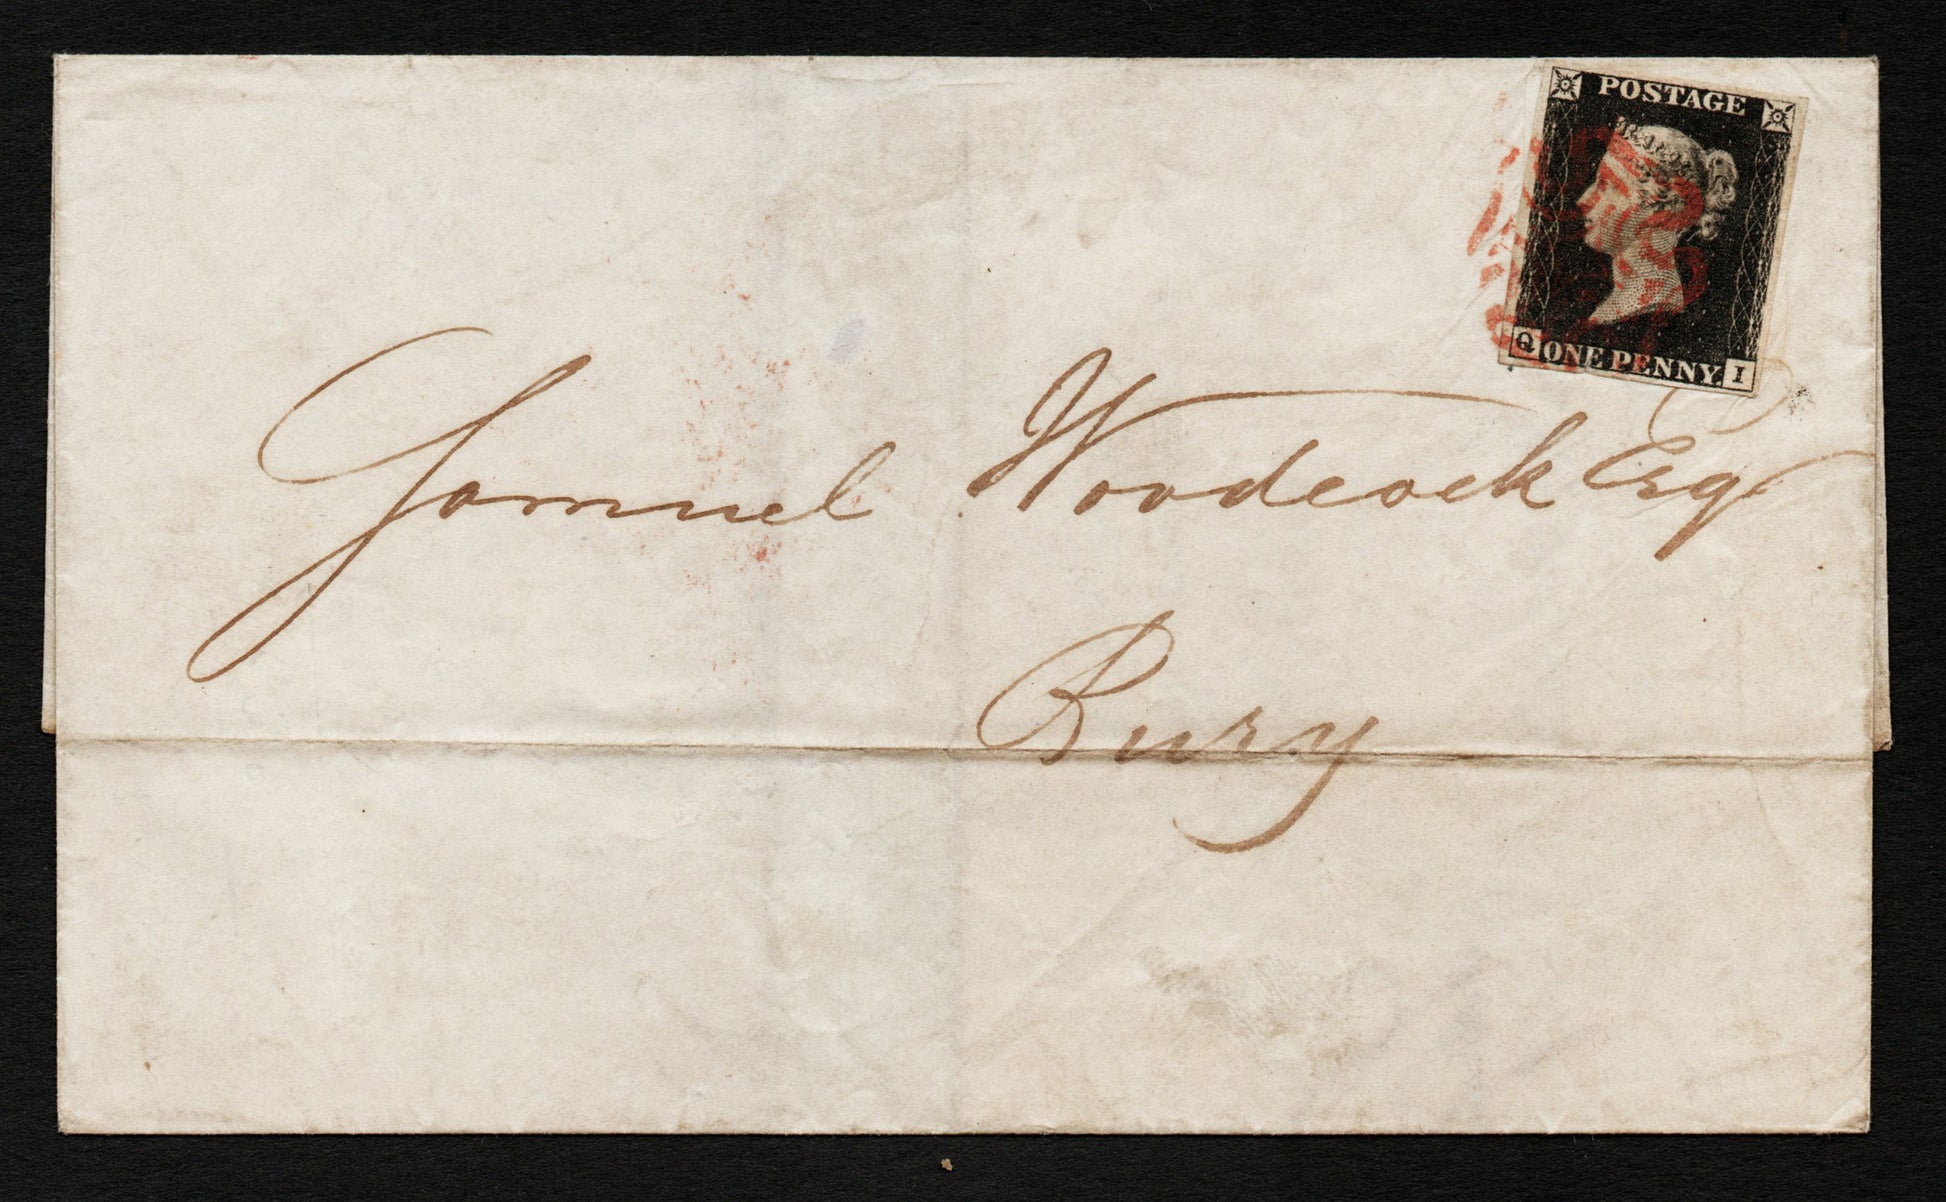 POSTAGE
Q ONE PENNY. I
Samuel Woodcock Esqr
Bury